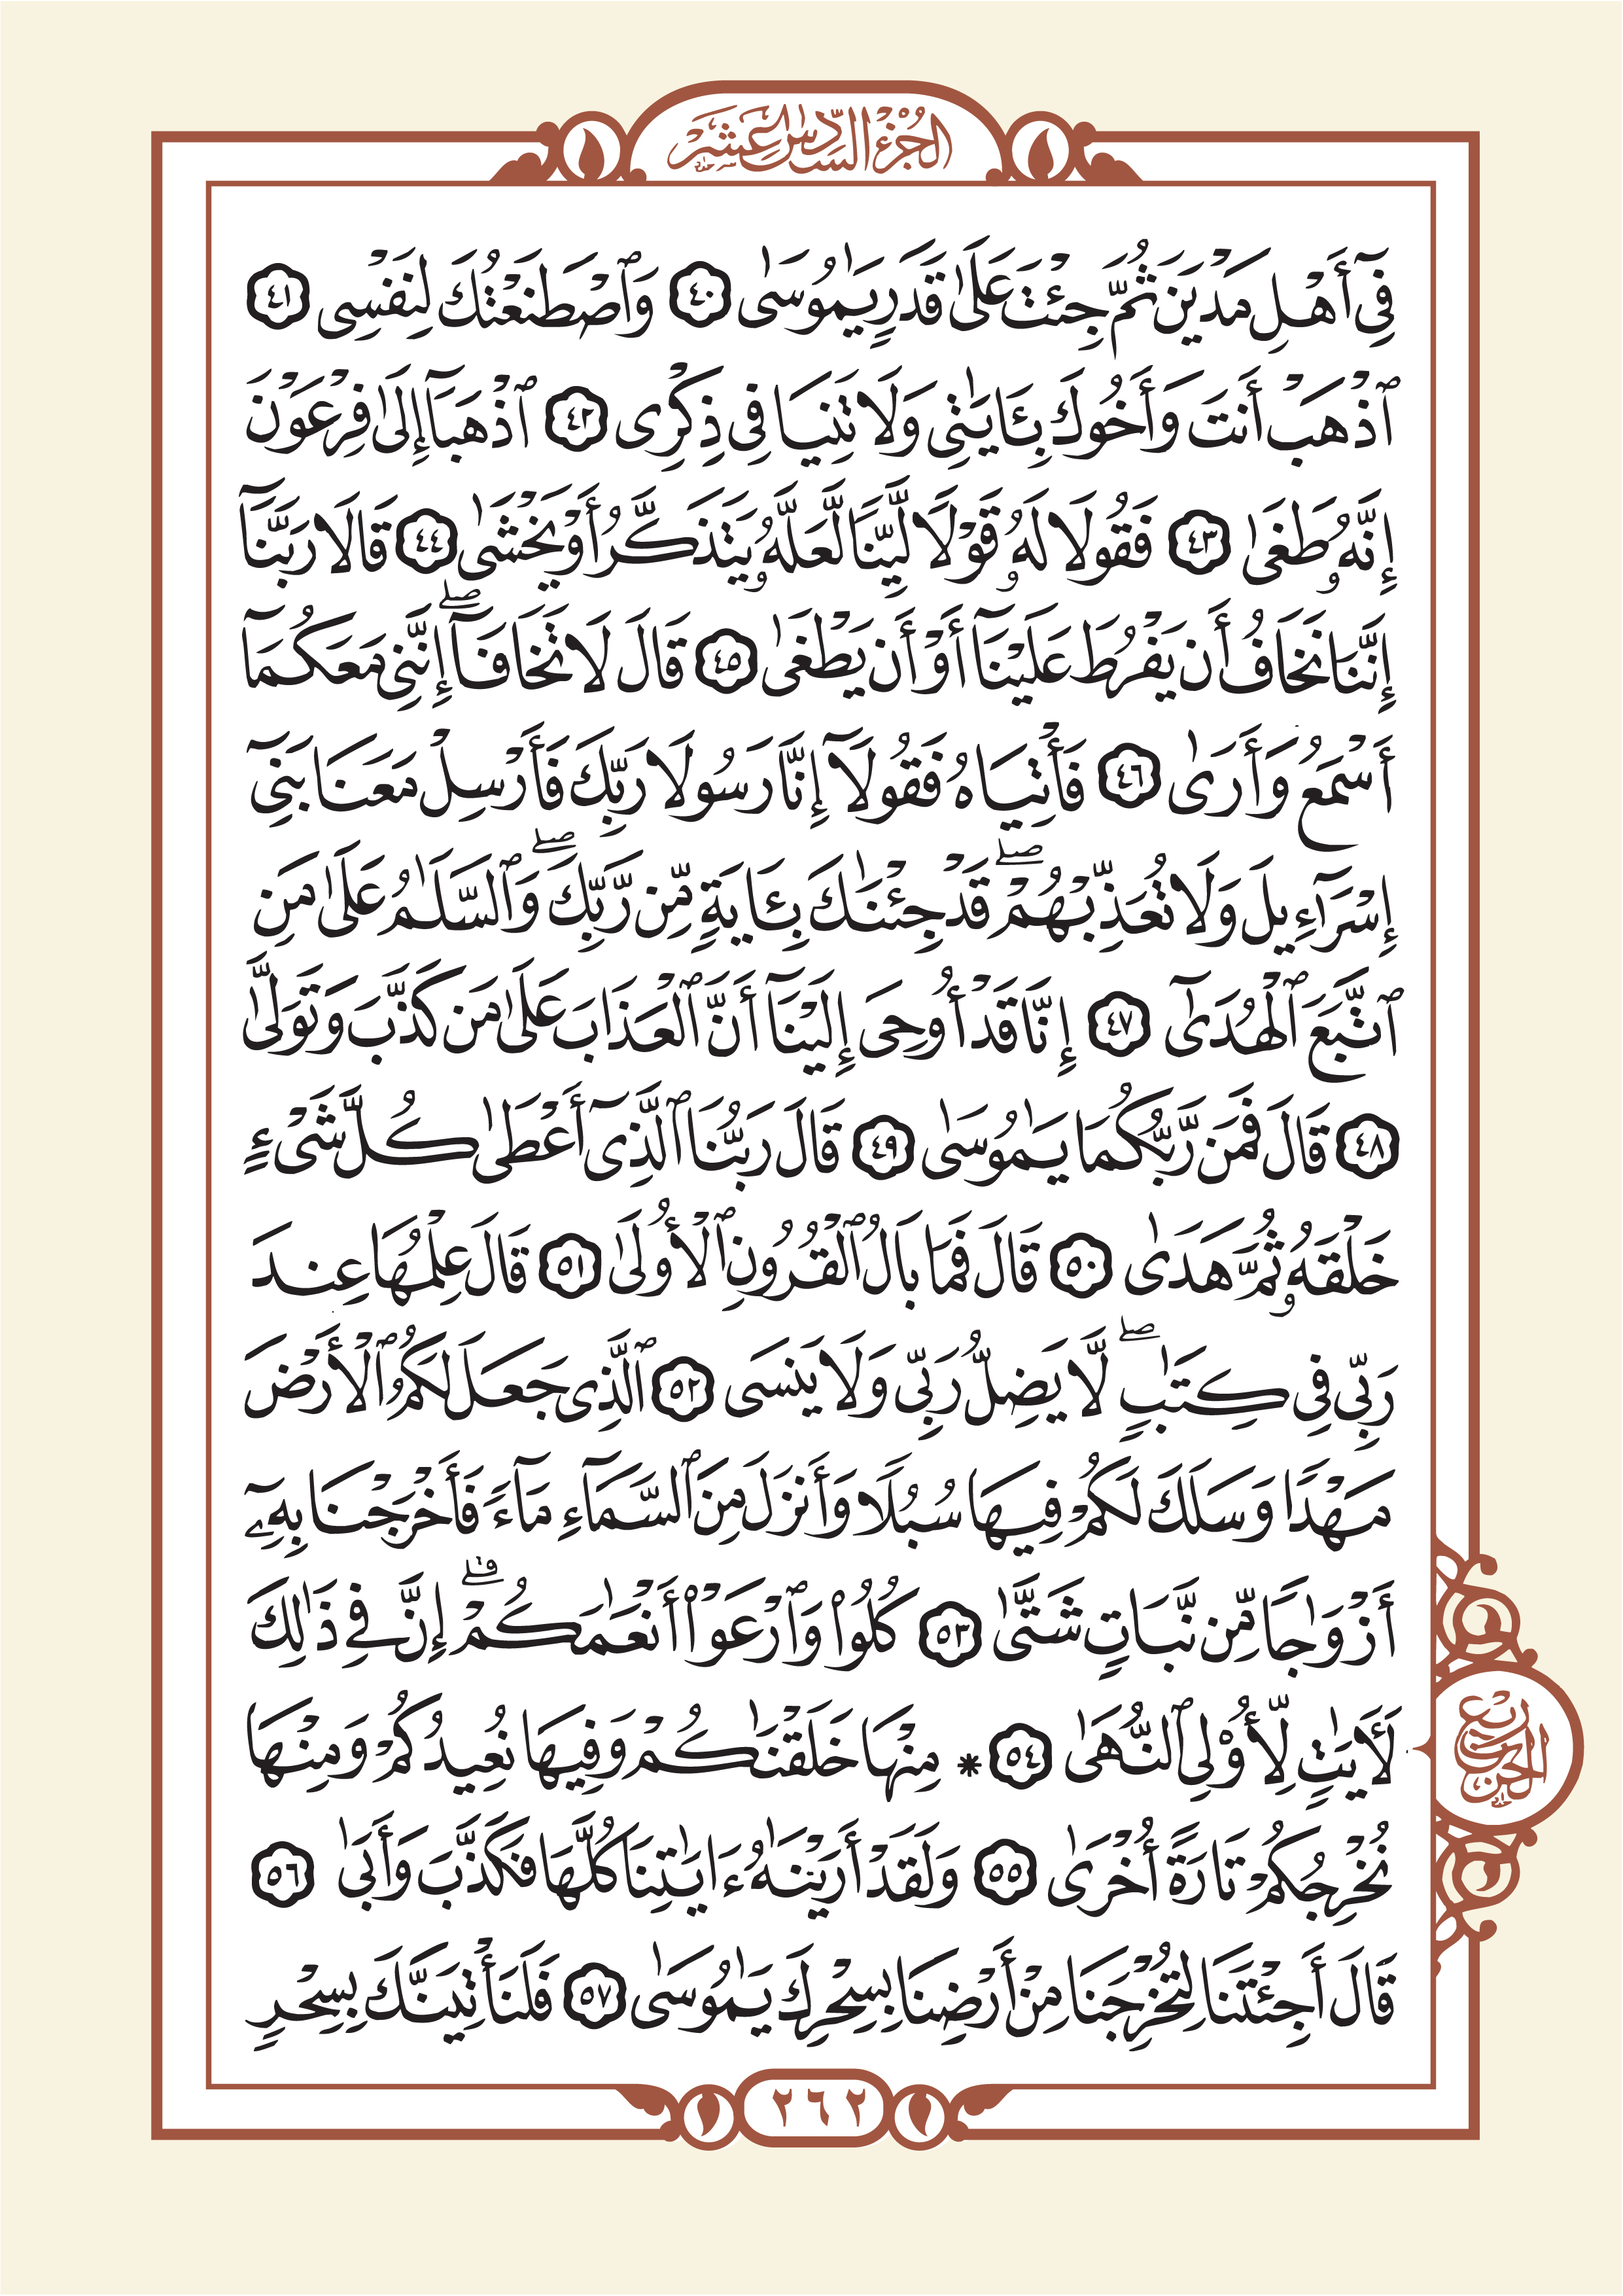 الجُزْءُ السَّادِسَ عَشَرَ
فِيٓ أَهۡلِ مَدۡيَنَ ثُمَّ جِئۡتَ عَلَىٰ قَدَرٖ يَٰمُوسَىٰ ٤٠ وَٱصۡطَنَعۡتُكَ لِنَفۡسِي ٤١
ٱذۡهَبۡ أَنتَ وَأَخُوكَ بِـَٔايَٰتِي وَلَا تَنِيَا فِي ذِكۡرِي ٤٢ ٱذۡهَبَآ إِلَىٰ فِرۡعَوۡنَ
إِنَّهُۥ طَغَىٰ ٤٣ فَقُولَا لَهُۥ قَوۡلٗا لَّيِّنٗا لَّعَلَّهُۥ يَتَذَكَّرُ أَوۡ يَخۡشَىٰ ٤٤ قَالَا رَبَّنَآ
إِنَّنَا نَخَافُ أَن يَفۡرُطَ عَلَيۡنَآ أَوۡ أَن يَطۡغَىٰ ٤٥ قَالَ لَا تَخَافَآۖ إِنَّنِي مَعَكُمَآ
أَسۡمَعُ وَأَرَىٰ ٤٦ فَأۡتِيَاهُ فَقُولَآ إِنَّا رَسُولَا رَبِّكَ فَأَرۡسِلۡ مَعَنَا بَنِيٓ
إِسۡرَٰٓءِيلَ وَلَا تُعَذِّبۡهُمۡۖ قَدۡ جِئۡنَٰكَ بِـَٔايَةٖ مِّن رَّبِّكَۖ وَٱلسَّلَٰمُ عَلَىٰ مَنِ
ٱتَّبَعَ ٱلۡهُدَىٰٓ ٤٧ إِنَّا قَدۡ أُوحِيَ إِلَيۡنَآ أَنَّ ٱلۡعَذَابَ عَلَىٰ مَن كَذَّبَ وَتَوَلَّىٰ
٤٨ قَالَ فَمَن رَّبُّكُمَا يَٰمُوسَىٰ ٤٩ قَالَ رَبُّنَا ٱلَّذِيٓ أَعۡطَىٰ كُلَّ شَيۡءٍ
خَلۡقَهُۥ ثُمَّ هَدَىٰ ٥٠ قَالَ فَمَا بَالُ ٱلۡقُرُونِ ٱلۡأُولَىٰ ٥١ قَالَ عِلۡمُهَا عِندَ
رَبِّي فِي كِتَٰبٖۖ لَّا يَضِلُّ رَبِّي وَلَا يَنسَى ٥٢ ٱلَّذِي جَعَلَ لَكُمُ ٱلۡأَرۡضَ
مَهۡدٗا وَسَلَكَ لَكُمۡ فِيهَا سُبُلٗا وَأَنزَلَ مِنَ ٱلسَّمَآءِ مَآءٗ فَأَخۡرَجۡنَا بِهِۦٓ
أَزۡوَٰجٗا مِّن نَّبَاتٖ شَتَّىٰ ٥٣ كُلُواْ وَٱرۡعَوۡاْ أَنۡعَٰمَكُمۡۚ إِنَّ فِي ذَٰلِكَ
لَأٓيَٰتٖ لِّأُوْلِي ٱلنُّهَىٰ ٥٤ * مِنۡهَا خَلَقۡنَٰكُمۡ وَفِيهَا نُعِيدُكُمۡ وَمِنۡهَا
نُخۡرِجُكُمۡ تَارَةً أُخۡرَىٰ ٥٥ وَلَقَدۡ أَرَيۡنَٰهُ ءَايَٰتِنَا كُلَّهَا فَكَذَّبَ وَأَبَىٰ ٥٦
قَالَ أَجِئۡتَنَا لِتُخۡرِجَنَا مِنۡ أَرۡضِنَا بِسِحۡرِكَ يَٰمُوسَىٰ ٥٧ فَلَنَأۡتِيَنَّكَ بِسِحۡرٖ
ربع الحزب
٢٦٢